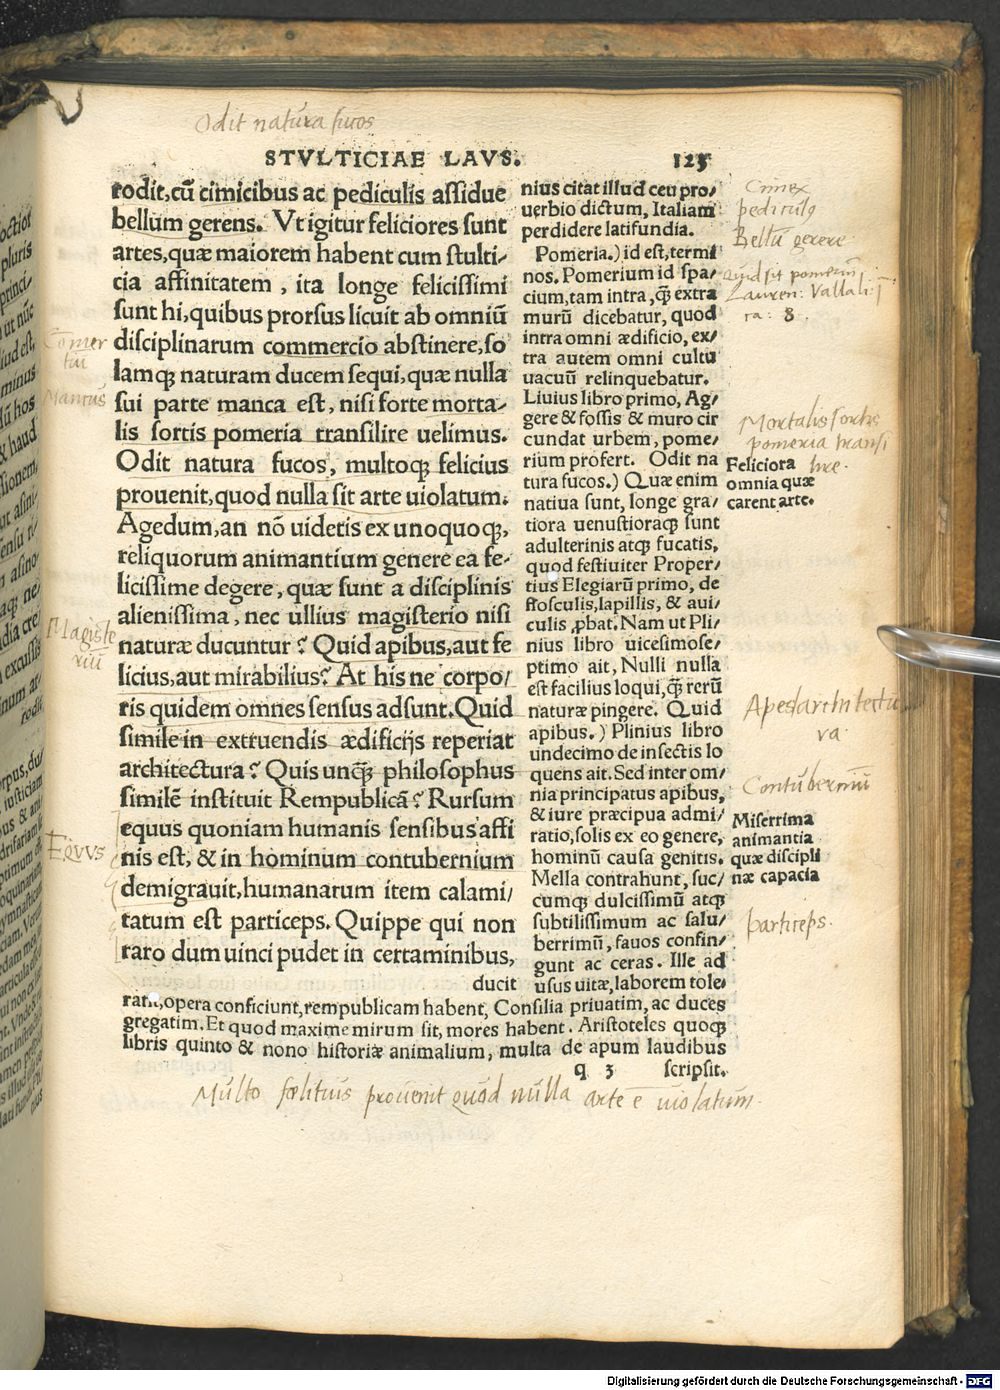 Odit natura fucos
STVLTICIAE LAVS. 123
rodit,cũ cimicibus ac pediculis assidue
bellum gerens. Vt igitur feliciores sunt
artes,quæ maiorem habent cum stulti-
cia affinitatem, ita longe felicissimi
sunt hi,quibus prorsus licuit ab omniũ
disciplinarum commercio abstinere,so
lamqꝫ naturam ducem sequi,quæ nulla
sui parte manca est, nisi forte morta-
lis sortis pomeria transilire uelimus.
Odit natura fucos, multoqꝫ felicius
prouenit,quod nulla sit arte uiolatum.
Agedum,an nõ uidetis ex unoquoqꝫ,
reliquorum animantium genere ea fe-
licissime degere, quæ sunt a disciplinis
alienissima, nec ullius magisterio nisi
naturæ ducuntur? Quid apibus,aut fe
licius,aut mirabilius? At his ne corpo/
ris quidem omnes sensus adsunt.Quid
simile in extruendis ædificijs reperiat
architectura? Quis unqꝫ̃ philosophus
similẽ instituit Rempublicã? Rursum
equus quoniam humanis sensibus affi
nis est, & in hominum contubernium
demigrauit,humanarum item calami/
tatum est particeps. Quippe qui non
raro dum uinci pudet in certaminibus,
ducit
nius citat illud ceu pro/
uerbio dictum, Italiam
perdidere latifundia.
Pomeria.) id est,termi
nos. Pomerium id spa/
cium,tam intra,qꝫ̃ extra
murũ dicebatur, quod
intra omni ædificio, ex/
tra autem omni cultu
uacuũ relinquebatur.
Liuius libro primo, Ag/
gere & fossis & muro cir
cundat urbem, pome/
rium profert. Odit na
tura fucos.) Quæ enim
natiua sunt, longe gra/
tiora uenustioraqꝫ sunt
adulterinis atqꝫ fucatis,
quod festiuiter Proper/
tius Elegiarũ primo, de
flosculis,lapillis, & aui/
culis ꝓbat. Nam ut Pli/
nius libro uicesimose/
ptimo ait, Nulli nulla
est facilius loqui,qꝫ̃ rerũ
naturæ pingere. Quid
apibus.) Plinius libro
undecimo de insectis lo
quens ait. Sed inter om/
nia principatus apibus,
& iure præcipua admi/
ratio,solis ex eo genere,
hominũ causa genitis.
Mella contrahunt, suc/
cumqꝫ dulcissimũ atqꝫ
subtilissimum ac salu/
berrimũ, fauos confin/
gunt ac ceras. Ille ad
usus uitæ,laborem tole/
rant,opera conficiunt,rempublicam habent, Consilia priuatim, ac duces
gregatim. Et quod maxime mirum sit, mores habent. Aristoteles quoqꝫ
libris quinto & nono historiæ animalium, multa de apum laudibus
q 3 scripsit.
Cimex
pediculꝰ
Bellũ gerere
Quid sit pomeriũ
Lauren: Valla li:
ra: 8.
Mortalis sortis
pomeria transi
lire.
Feliciora
omnia quæ
carent arte.
Apes architectu
ra
Contuberniũ
Miserrima
animantia
quæ discipli
næ capacia
particeps.
Comer
tiũ
Mancus
Magiste
riũ
Eqvvs
Multo fœlitius prouenit quod nulla arte ẽ uiolatum.
Digitalisierung gefördert durch die Deutsche Forschungsgemeinschaft - DFG